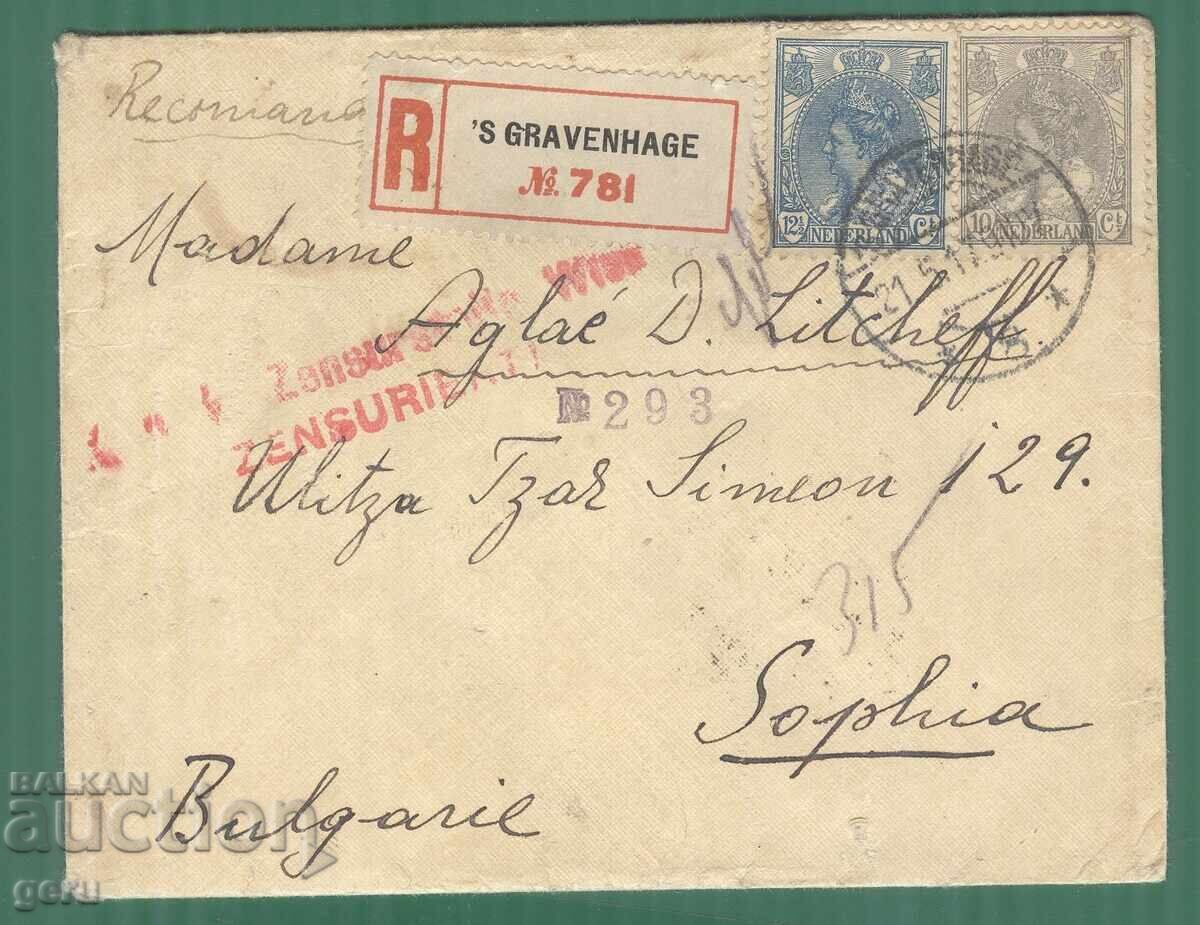 Recomand
R
'S GRAVENHAGE
No. 781
12½ Ct
NEDERLAND
10 Ct
NEDERLAND
21.5.17
Madame
Aglaé D. Litcheff.
Zensurstelle Wien
ZENSURIERT
No 293
Ulitza Tzar Simeon 129.
315
Sophia
Bulgarie
BALKAN
auction
geru